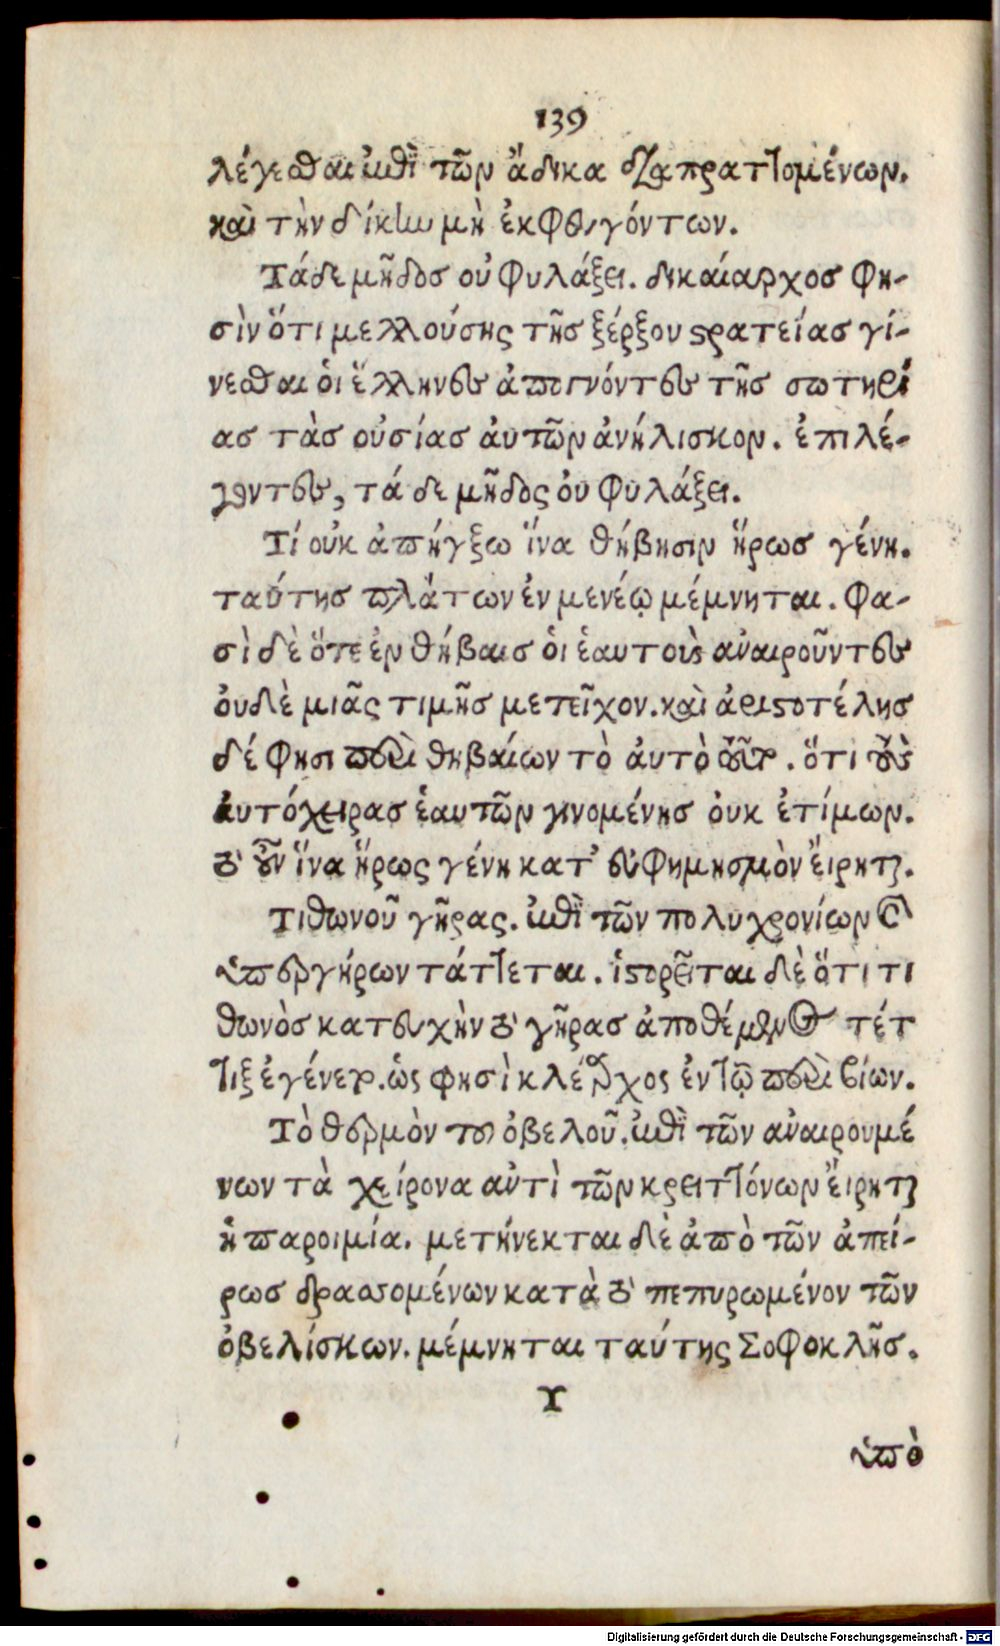 139
λέγεσθαι ἐπὶ τῶν ἄδικα διαπραττομένων.
καὶ τὴν δίκην μὴ ἐκφευγόντων.
Τάδε μῆδοσ οὐ φυλάξει. δικαίαρχοσ φη-
σὶν ὅτι μελλούσης τῆσ ξέρξου στρατείασ γί-
νεσθαι ὁι ἕλληνες ἀπογνόντες τῆσ σωτηρί
ασ τὰσ οὐσίασ ἀυτῶν ἀνήλισκον. ἐπιλέ-
γοντες, τά δε μῆδος ὀυ φυλάξει.
Τί οὐκ ἀπήγξω ἵνα θήβησιν ἥρωσ γένη.
ταύτησ πλάτων ἐν μενέῳ μέμνηται. φα-
σὶ δὲ ὅτι ἐν θήβαισ ὁι ἑαυτοὺς ἀναιροῦντες
ὀυδὲ μιᾶς τιμῆσ μετεῖχον. καὶ ἀριστοτέλησ
δέ φησι περὶ θηβαίων τὸ ἀυτὸ τοῦτο. ὅτι τοὺς
ἀυτόχειρασ ἑαυτῶν γινομένησ ὀυκ ἐτίμων.
τὸ οὖν ἵνα ἥρως γένη κατ' ἐυφημησμὸν ἔιρηται.
Τιθωνοῦ γῆρας. ἐπὶ τῶν πολυχρονίων καὶ
ὑπεργήρων τάττεται. ἱστορεῖται δὲ ὅτι τι
θωνὸσ κατευχὴν τὸ γῆρασ ἀποθέμενος τέτ
τιξ ἐγένετο. ὡς φησὶ κλέαρχος ἐν τῷ περὶ βίων.
Τὸ θερμὸν του ὀβελοῦ. ἐπὶ τῶν ἀναιρουμέ
νων τὰ χείρονα ἀντὶ τῶν κρειττόνων ἔιρηται
ἡ παροιμία. μετήνεκται δὲ ἀπὸ τῶν ἀπεί-
ρωσ δρασσομένων κατὰ τὸ πεπυρωμένον τῶν
ὀβελίσκων. μέμνηται ταύτης Σοφοκλῆσ.
Υ
ὑπὸ
Digitalisierung gefördert durch die Deutsche Forschungsgemeinschaft - DFG